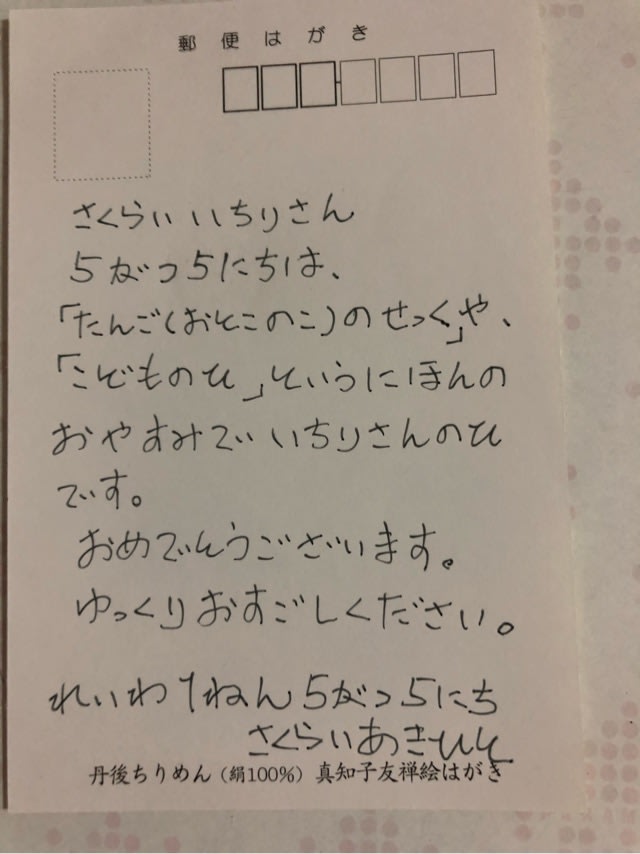 郵便はがき
さくらいいちりさん
5がつ5にちは、
「たんご(おとこのこ)のせっく」や、
「こどものひ」というにほんの
おやすみでいちりさんのひ
です。
おめでとうございます。
ゆっくりおすごしください。
れいわ1ねん5がつ5にち
さくらいあきひと
丹後ちりめん(絹100%)真知子友禅絵はがき